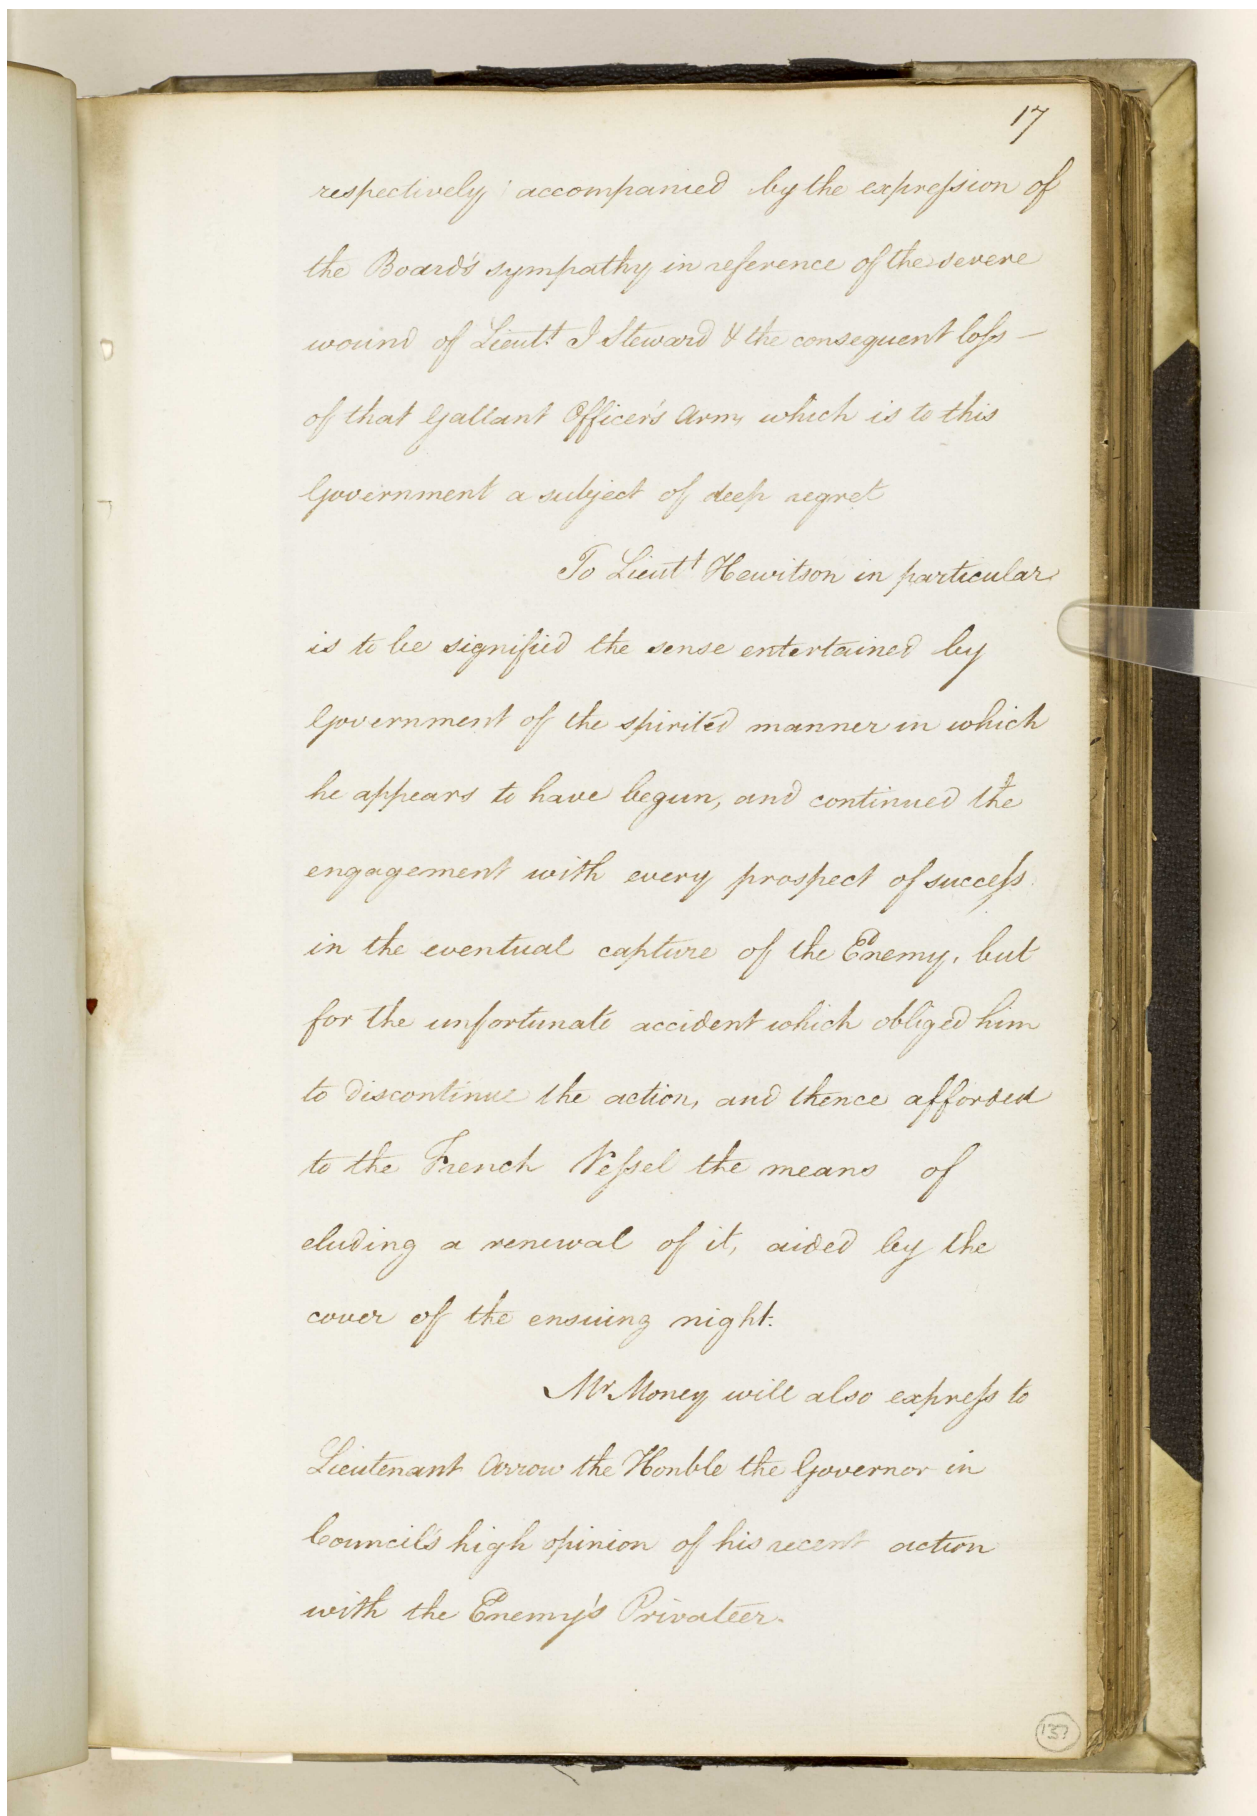 17
respectively accompanied by the expression of
the Board's sympathy in reference of the severe
wound of Lieutt. J Steward & the consequent loss —
of that Gallant Officer's Arm, which is to this
Government a subject of deep regret
To Lieutt Hewitson in particular
is to be signified the sense entertained by
Government of the spirited manner in which
he appears to have begun, and continued the
engagement with every prospect of success
in the eventual capture of the Enemy, but
for the unfortunate accident which obliged him
to discontinue the action, and thence afforded
to the French Vessel the means of
eluding a renewal of it, aided by the
cover of the ensuing night.
Mr Money will also express to
Lieutenant Arrow the Honble the Governor in
Council's high opinion of his recent action
with the Enemy's Privateer.